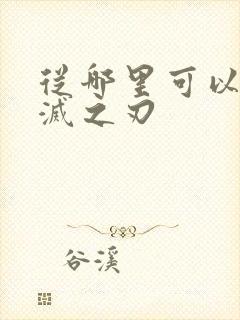 從哪里可以
滅之刃
谷溪